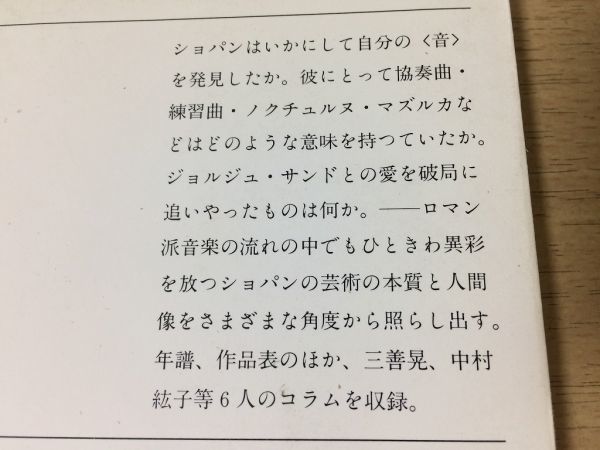 ショパンはいかにして自分の〈音〉
を発見したか。彼にとって協奏曲・
練習曲・ノクチュルヌ・マズルカな
どはどのような意味を持つていたか。
ジョルジュ・サンドとの愛を破局に
追いやったものは何か。――ロマン
派音楽の流れの中でもひときわ異彩
を放つショパンの芸術の本質と人間
像をさまざまな角度から照らし出す。
年譜、作品表のほか、三善晃、中村
紘子等6人のコラムを収録。